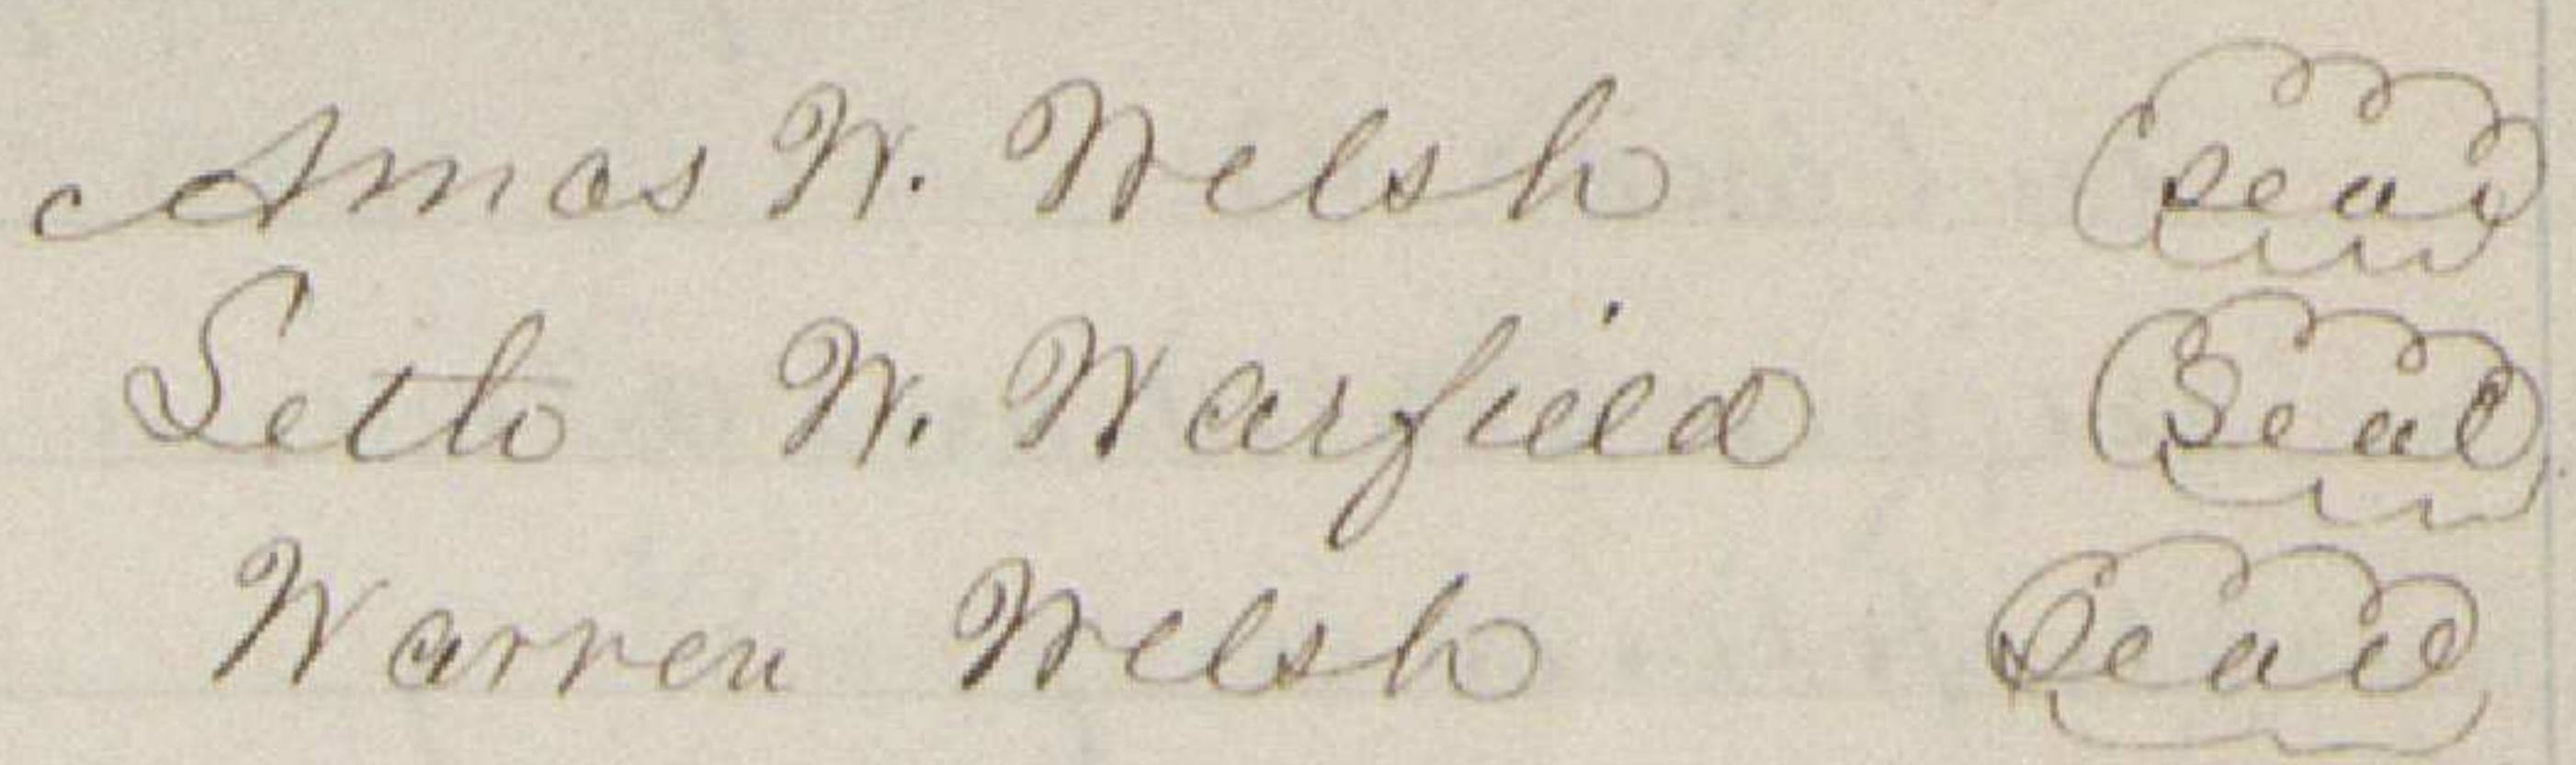 Amos W. Welsh seal
Seth W. Warfield Seal
Warren Welsh Seal